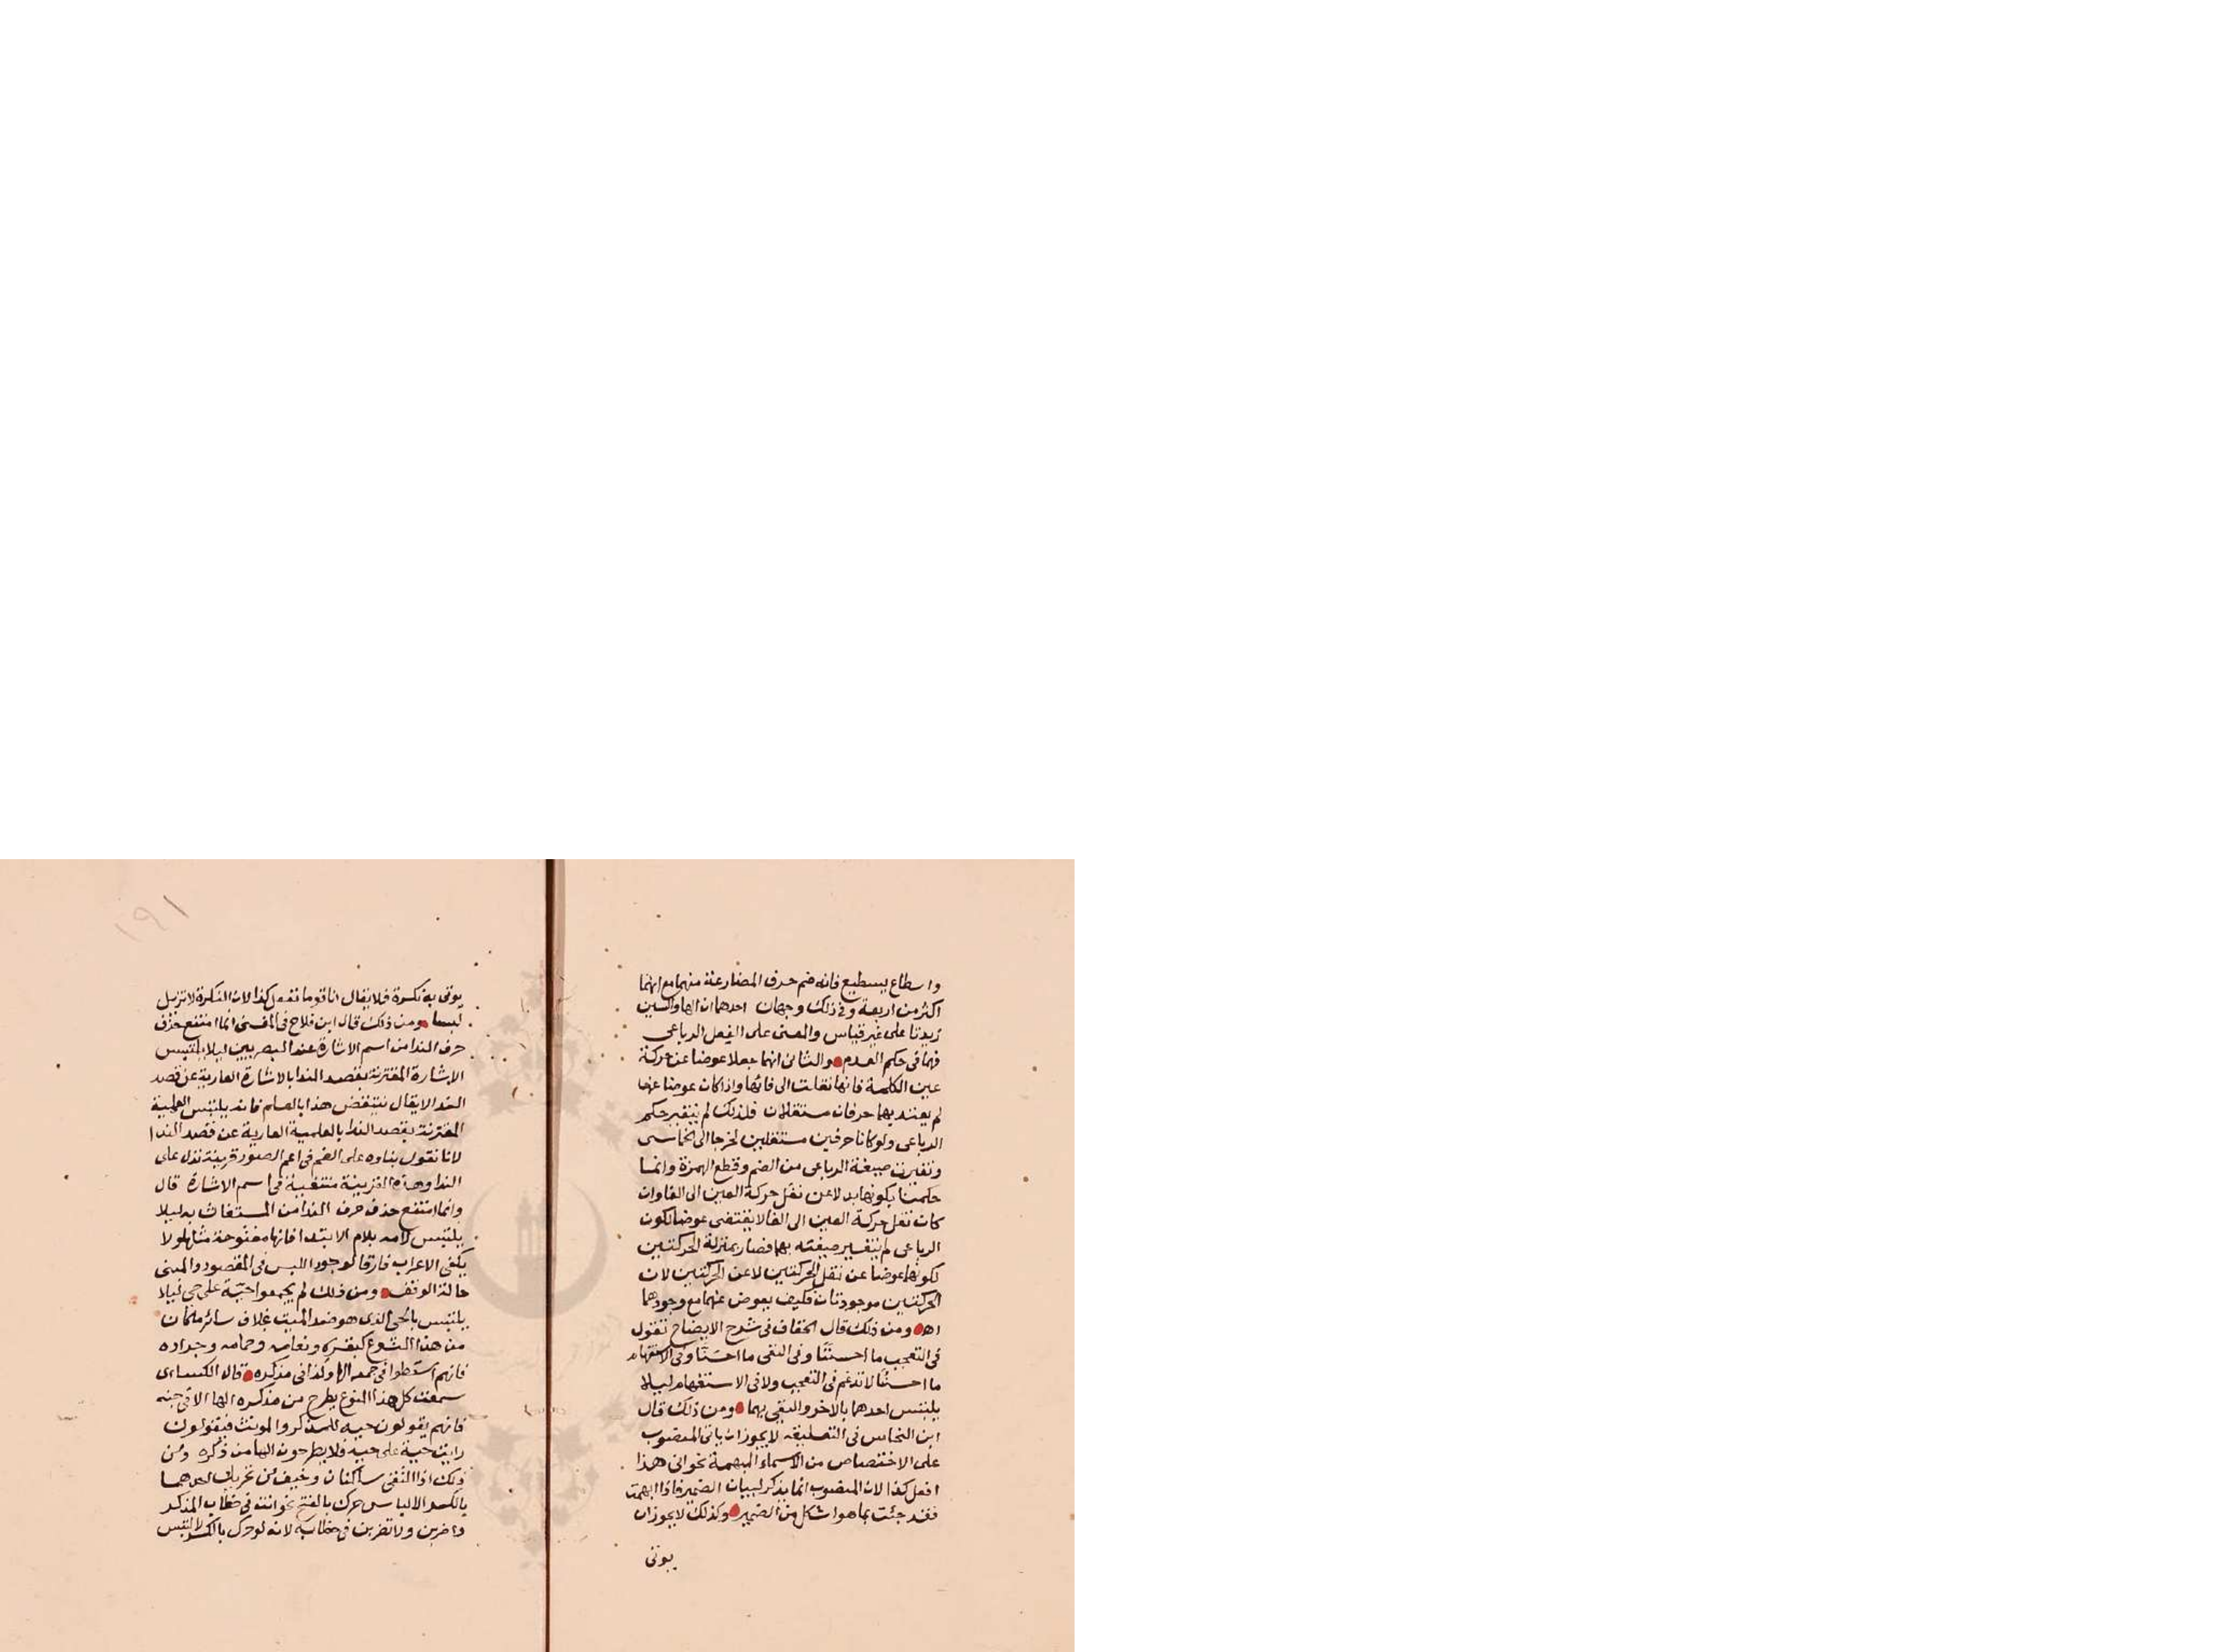 واسطاع يسطيع فانه ضم حرف المضارعة منهما مع انهما
اكثر من اربعة وفي ذلك وجهان احدهما ان الها والسين
زيدتا على غير قياس والمعنى على الفعل الرباعي
فهما في حكم العدم والثاني انهما جعلا عوضا عن حركة
عين الكلمة فانها نقلت الى فائها واذا كان عوضا عنها
لم يعتد بهما حرفان مستقلان فلذلك لم يتغير حكم
الرباعي ولو كانا حرفين مستقلين لخرجا الى الخماسي
وتغيرت صيغة الرباعي من الضم وقطع الهمزة وانما
حكمنا بكونها بدلا عن نقل حركة العين الى الفا وان
كان نقل حركة العين الى الفا لا يقتضي عوضا لكون
الرباعي لم تتغير صيغته بهما فصار بمنزلة الحركتين
لكونهما عوضا عن نقل الحركتين لا عن الحركتين لان
الحركتين موجودتان فكيف يعوض عنهما مع وجودهما
اه ومن ذلك قال الخفاف في شرح الايضاح تقول
في التعجب ما احسننا وفي النفي ما احسنا وفي الاستفهام
ما احسننا لا تدغم في التعجب ولا في الاستفهام ليلا
يلتبس احدهما بالاخر والنفي بهما ومن ذلك قال
ابن النحاس في التعليقه لا يجوز ان ياتي المنصوب
على الاختصاص من الاسماء المبهمة نحو اني هذا
افعل كذا لان المنصوب انما يذكر لبيان الضمير فاذا ابهمت
فقد جئت بما هو اشكل من الضمير وكذلك لا يجوز ان
يوتى
١٩١
يوتى به نكرة فلا يقال انا قوما نفعل كذا لان النكرة لا تزيل
لبسا ومن ذلك قال ابن فلاح في المغني انما امتنع حذف
حرف الندا من اسم الاشارة عند البصريين ليلا يلتبس
الاشارة المقترنة بقصد الندا بالاشارة العارية عن قصد
الندا لا يقال ينتقض هذا بالعلم فانه يلتبس العلمية
المقترنة بقصد الندا بالعلمية العارية عن قصد الندا
لانا نقول بناوه على الضم في اعم الصور قرينة تدل على
الندا وهذه القرينة منتفية في اسم الاشارة قال
وانما امتنع حذف حرف الندا من المستغاث به ليلا
يلتبس لامه بلام الابتدا فانها مفتوحة مثلها ولا
يكفي الاعراب فارقا لوجود اللبس في المقصور والمبنى
حالة الوقف ومن ذلك لم يجمعوا حية على حي ليلا
يلتبس بالحي الذي هو ضد الميت بخلاف سائر ما كان
من هذا النوع كبقره ونعامه وحمامه وجراده
فانهم اسقطوا في جمعه الها وكذا في مذكره قال الكساى
سمعت كل هذا النوع يطرح من مذكره الها الا في حيه
فانهم يقولون حيه للمذكر والمونث فيقولون
رايت حية على حية فلا يطرحون الها من ذكره ومن
ذلك اذا التقى ساكنان وخيف من تحريك احدهما
بالكسر الالباس حرك بالفتح نحو انت في خطاب المذكر
واضربن ولا تضربن في خطابه لانه لو حرك بالكسر لالتبس